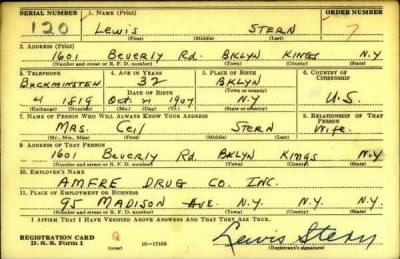 SERIAL NUMBER 1. NAME (Print) ORDER NUMBER
120 Lewis STERN 7
(First) (Middle) (Last)
2. ADDRESS (Print)
1601 Beverly Rd. BKLYN KINGS N.Y
(Number and street or R. F. D. number) (Town) (County) (State)
3. TELEPHONE 4. AGE IN YEARS 5. PLACE OF BIRTH 6. COUNTRY OF CITIZENSHIP
BUCKMINSTER 32 BKLYN
DATE OF BIRTH (Town or county)
4 1519 Oct. 21 1907 N.Y U.S.
(Exchange) (Number) (Mo.) (Day) (Yr.) (State or country)
7. NAME OF PERSON WHO WILL ALWAYS KNOW YOUR ADDRESS 8. RELATIONSHIP OF THAT PERSON
MRS. Ceil STERN Wife.
(Mr., Mrs., Miss) (First) (Middle) (Last)
9. ADDRESS OF THAT PERSON
1601 Beverly Rd. BKLYN KINGS N.Y
(Number and street or R. F. D. number) (Town) (County) (State)
10. EMPLOYER'S NAME
AMFRE DRUG CO. INC.
11. PLACE OF EMPLOYMENT OR BUSINESS
95 MADISON AVE. N.Y. N.Y. N.Y
(Number and street or R. F. D. number) (Town) (County) (State)
I AFFIRM THAT I HAVE VERIFIED ABOVE ANSWERS AND THAT THEY ARE TRUE.
REGISTRATION CARD Q Lewis Stern
D. S. S. Form 1 (over) 16—17105 (Registrant's signature)